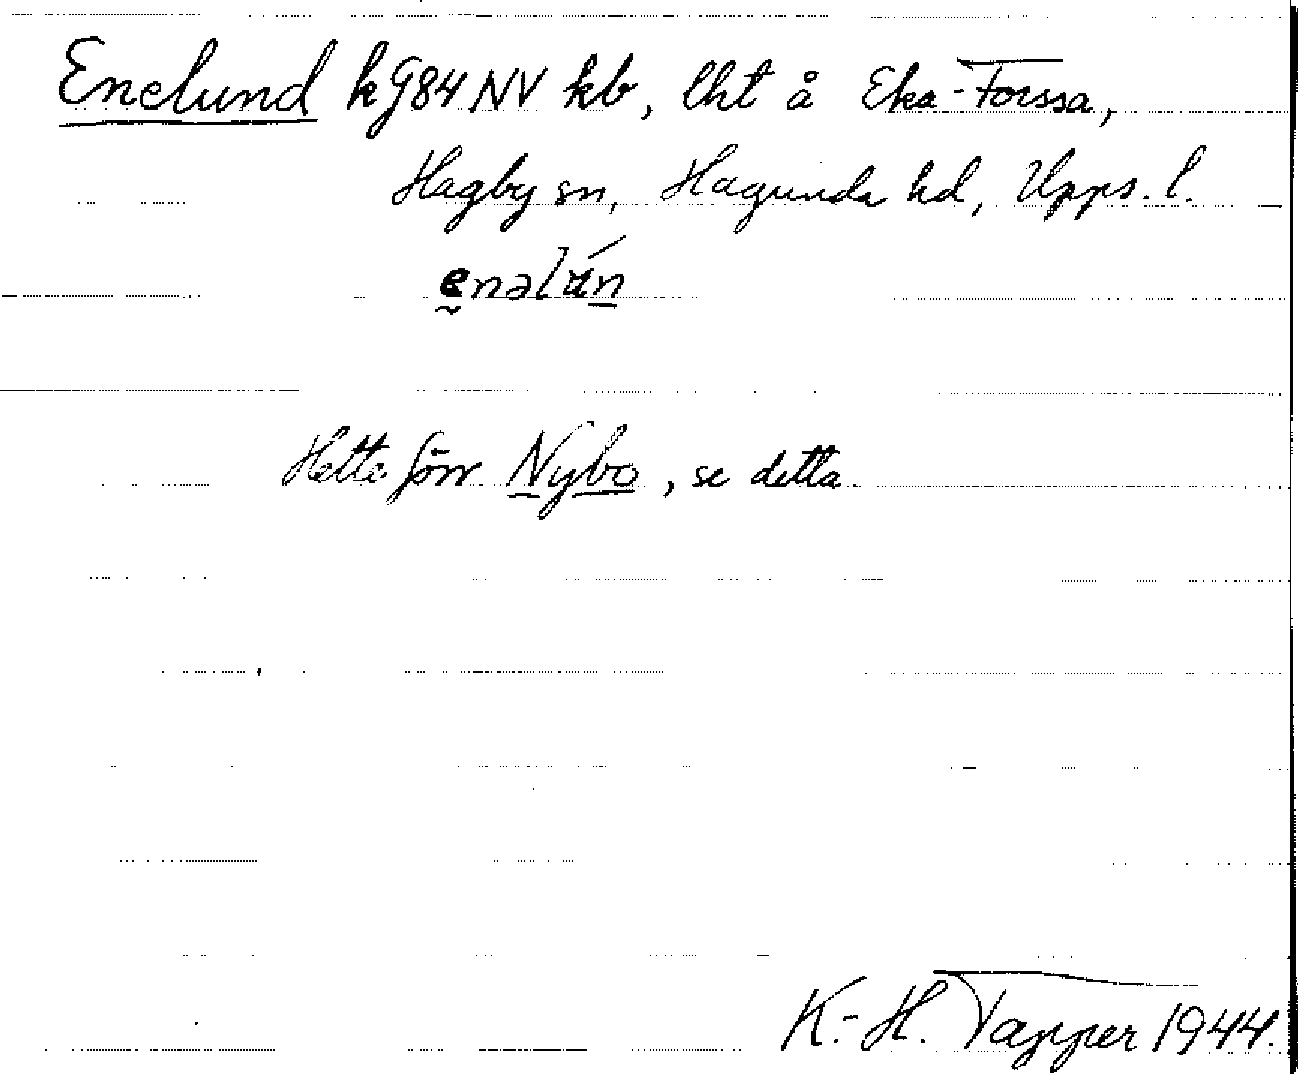 Enelund kg84NV kb, lht å Eka-Forssa,
Hagby sn, Hagunda hd, Upps. l.
enəlún
Hette förr Nybo, se detta.
K.-H. Tapper 1944.